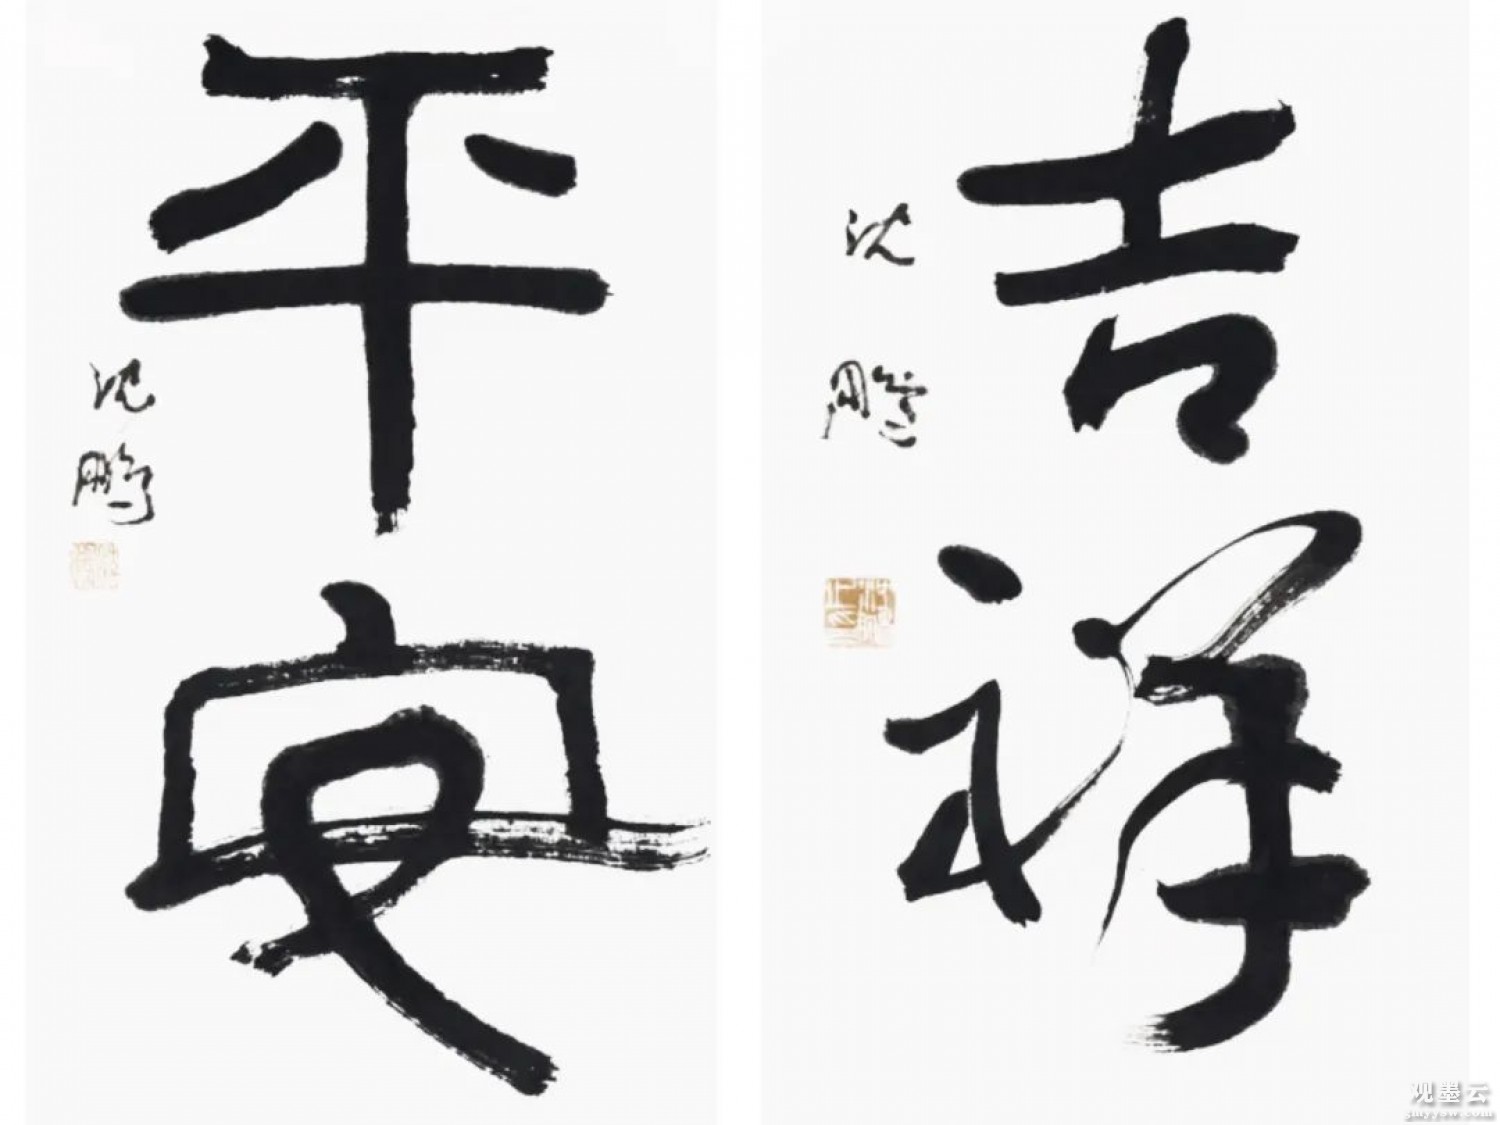 吉祥
沈鹏
平安
沈鹏
观墨云
gmyyow.com